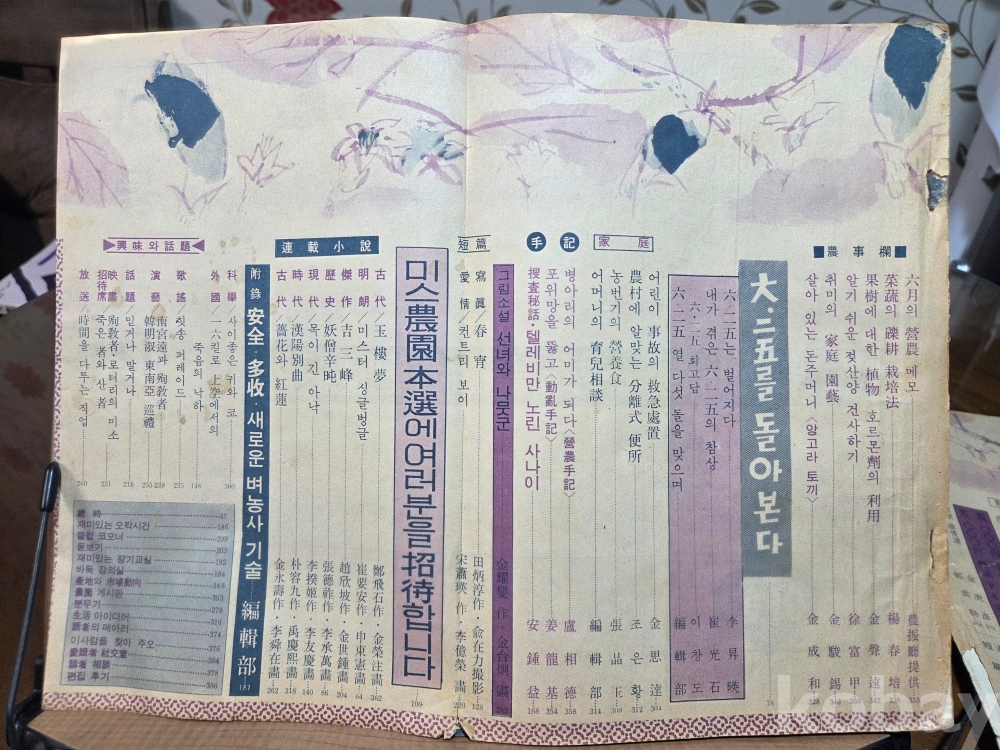 ■農事欄■
六月의 營農 메모 農振廳提供 333
菜蔬의 礫耕 栽培法 楊春培
果樹에 대한 植物 호르몬劑의 利用 金聲遠
알기 쉬운 젖산양 건사하기 徐富甲
취미의 家庭 園藝 金駿錫
살아 있는 돈주머니 〈앙고라 토끼〉 金成和 328
六·二五를 돌아본다 78
六·二五는 벌어지다 李昇映
내가 겪은 六·二五의 참상 崔光石
六·二五 회고담 이창도
六·二五 열 다섯 돌을 맞으며 編輯部
家庭
어린이 事故의 救急處置 金思達 304
農村에 알맞는 分離式 便所 조은황 312
농번기의 營養食 張晶玉 308
어머니의 育兒相談 編輯部 314
手記
병아리의 어미가 되다〈營農手記〉 盧相德 358
포위망을 뚫고〈動亂手記〉 姜龍基 354
捜査秘話·텔레비만 노린 사나이 安鍾益 168
그림소설 선녀와 나뭇군 金耀燮 作·金台炯 畵 283
短篇
寫眞／春宵 田炳淳作·兪在力撮影 128
愛情／컨트리 보이 宋肅瑛 作·李億榮 畵 220
미스農園本選에여러분을招待합니다 109
連載小說
古代／玉樓夢 鄭飛石作·金榮注畵 362
明朗／미스터 싱글벙글 崔要安作·申東憲畵 64
傑作／古三峰 趙欣坡作·金世鍾畵 204
歷史／妖僧辛旽 張德祚作·李承萬畵 86
現代／목이 긴 아낙 李揆姬作·李友慶畵 140
時代／漢陽別曲 朴容九作·禹慶熙畵 318
古代／薔花와 紅蓮 金永壽作·李舜在畵 262
附錄 安全·多收·새로운 벼농사 기술 編輯部 187
▶興味와話題◀
科學／사이좋은 귀와 코 300
外國／一六킬로 上空에서의 죽음의 낙하 148
歌謠／힛송 퍼레이드 235
演藝／南宮遠과 殉敎者 239
韓明淑 東南亞 巡禮 256
話題／믿거나 말거나 218
映畵／殉敎者·로터리의 미소
招待席／죽은 者와 산 者 251
放送／時間을 다투는 직업 260
歲時 47
재미있는 오락시간 186
클럽 코오너 299
돋보기 203
재미있는 장기교실 182
바둑 강의실 184
產地와 市場動向 348
農園 게시판 353
분무기 278
生活 아이디어 316
讀者의 메아리 374
이사람을 찾아 주오
愛讀者 社交室 384
讀者 相談 378
편집 후기 386
kobay